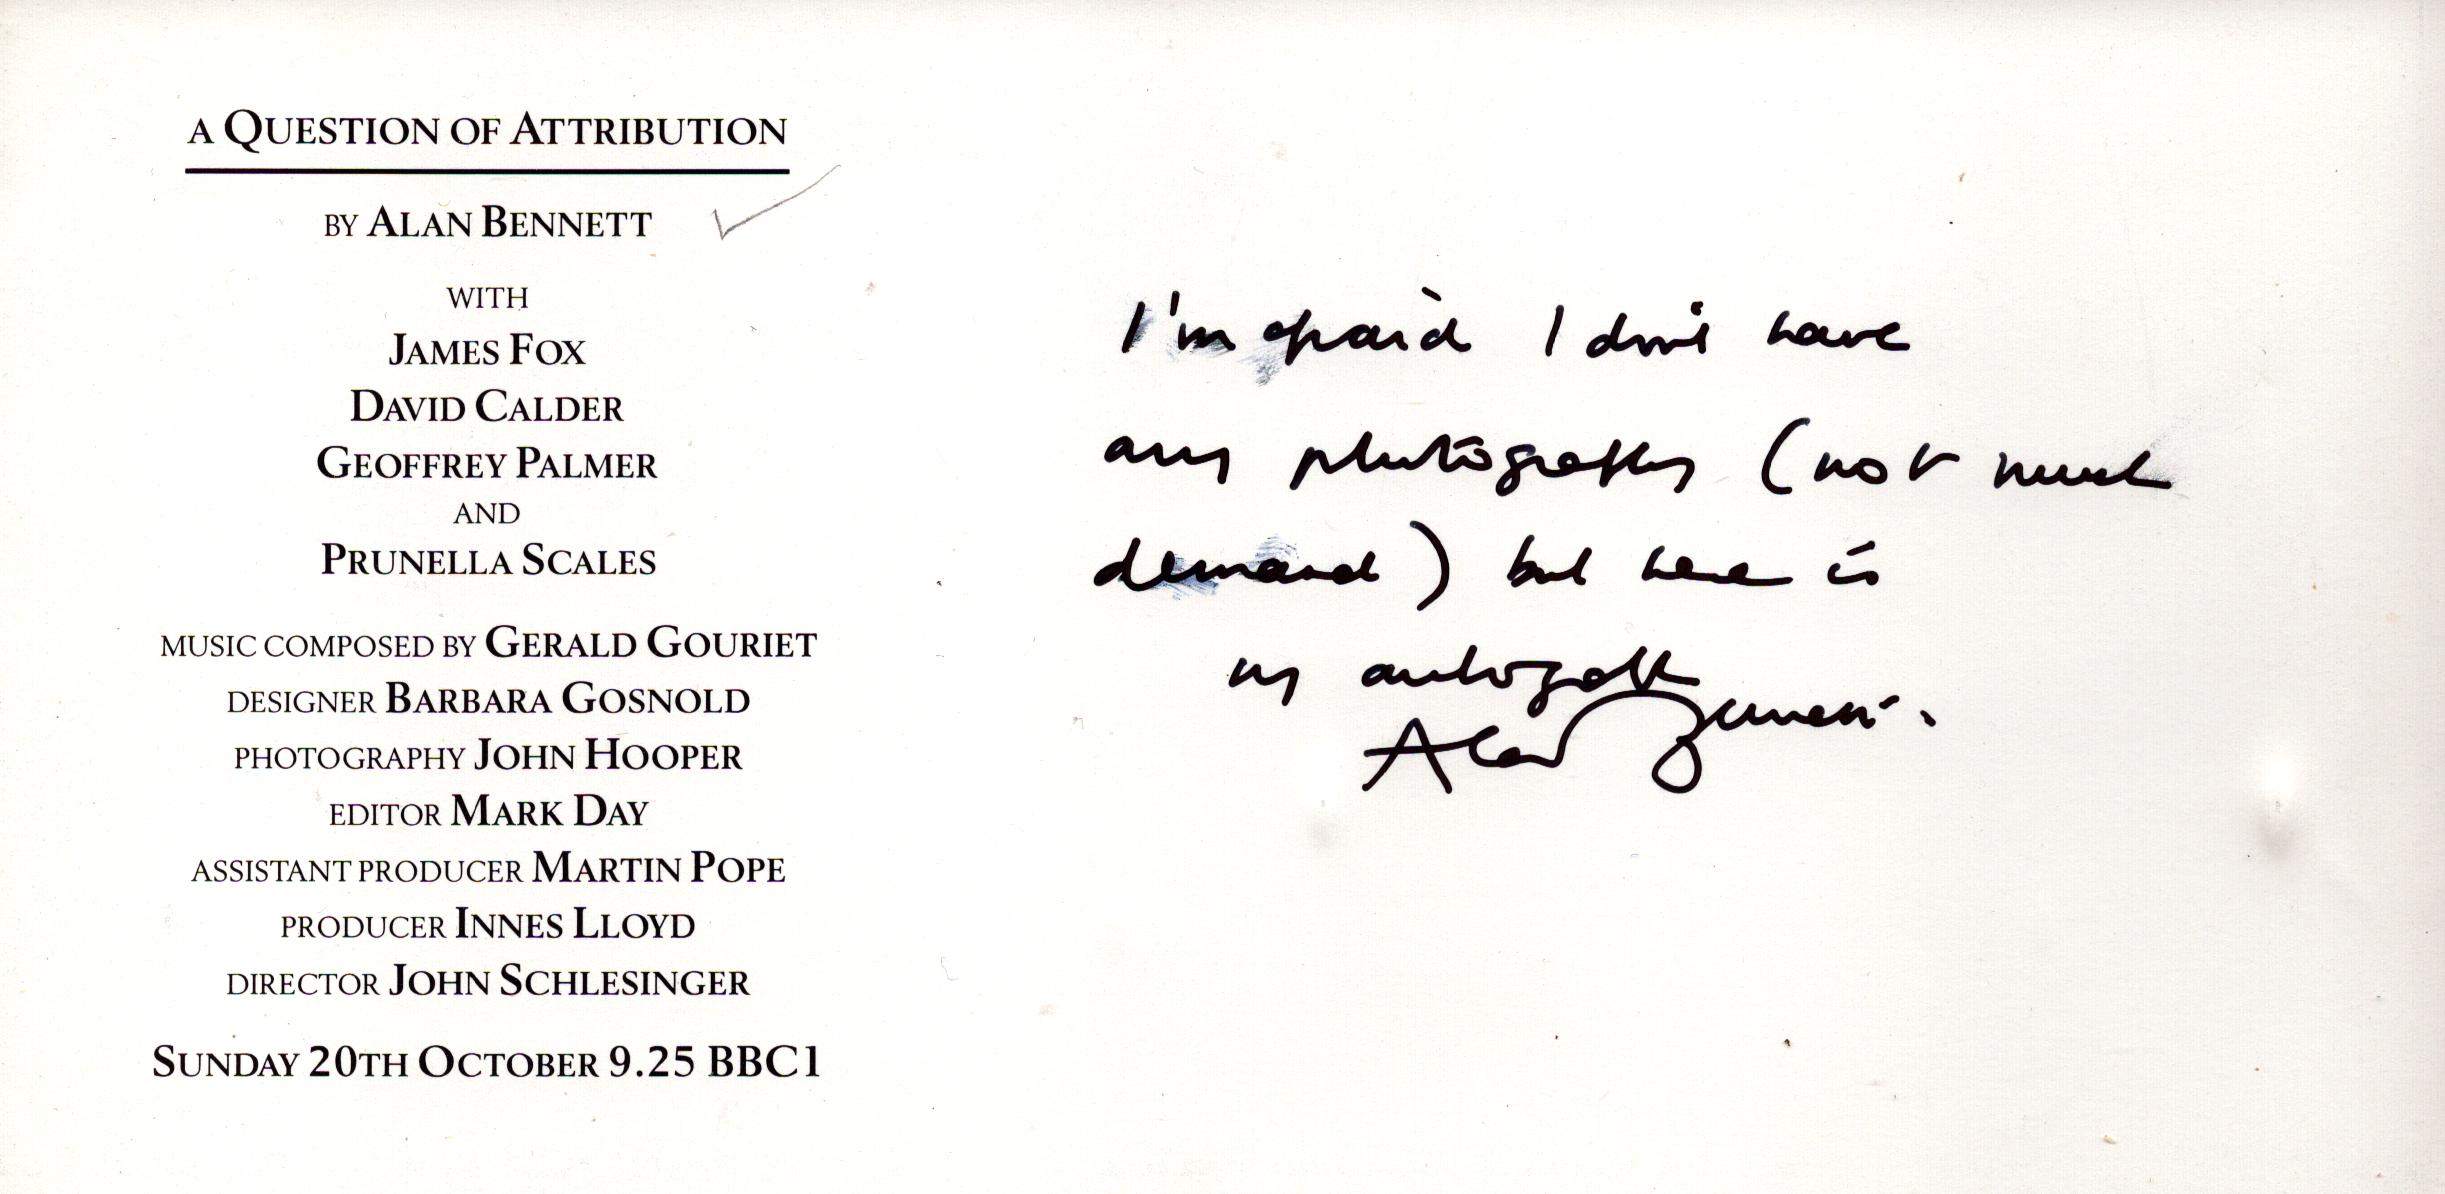 A QUESTION OF ATTRIBUTION
BY ALAN BENNETT
WITH
JAMES FOX
DAVID CALDER
GEOFFREY PALMER
AND
PRUNELLA SCALES
MUSIC COMPOSED BY GERALD GOURIET
DESIGNER BARBARA GOSNOLD
PHOTOGRAPHY JOHN HOOPER
EDITOR MARK DAY
ASSISTANT PRODUCER MARTIN POPE
PRODUCER INNES LLOYD
DIRECTOR JOHN SCHLESINGER
SUNDAY 20TH OCTOBER 9.25 BBC1
I'm afraid I don't have
any photographs (not much
demand) but here is
my autograph
Alan Bennett.